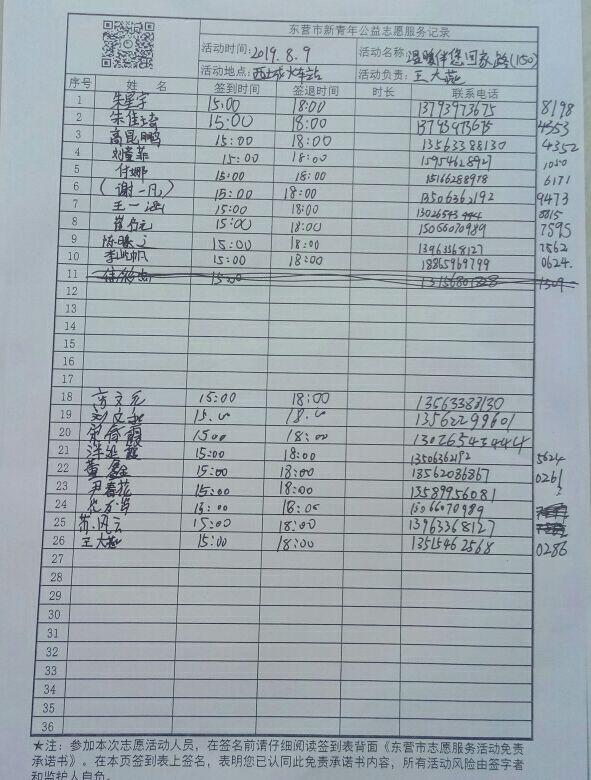 东营市新青年公益志愿服务记录
活动时间: 2019.8.9 活动名称: 温暖伴您回家路(150)
活动地点: 西城火车站 活动负责: 王大燕
序号 姓 名 签到时间 签退时间 时长 联系电话
1 朱星宇 15:00 18:00 13793973675 8198
2 朱佳琦 15:00 18:00 13793973675 4353
3 高昆鹏 15:00 18:00 13563388130 4352
4 刘 菲 15:00 18:00 15954628927 1050
5 付娜 15:00 18:00 15166288978 6171
6 (谢一凡) 15:00 18:00 13506362192 9473
7 王一涵 15:00 18:00 13026543444 8815
8 15:00 18:00 15066070989 7595
9 15:00 18:00 13963368127 7562
10 李 帆 15:00 18:00 18865969799 0624.
11 15:00
12
13
14
15
16
17
18 高文元 15:00 18:00 13563388130
19 刘文 15.00 18.00 13562299601
20 霞 15:00 18:00 13026543444
21 霞 15:00 18:00 13506362192 5624
22 鑫 15:00 18:00 18562086867 0261
23 尹春花 15:00 18:00 13589956081 ?
24 15:00 18:00 15066070989
25 苏凤云 15:00 18:00 13963368127
26 王大燕 15:00 18:00 13515462568 0286
27
28
29
30
31
32
33
34
35
36
★注: 参加本次志愿活动人员，在签名前请仔细阅读签到表背面《东营市志愿服务活动免责
承诺书》。在本页签到表上签名，表明您已认同此免责承诺书内容，所有活动风险由签字者
和监护人自负。